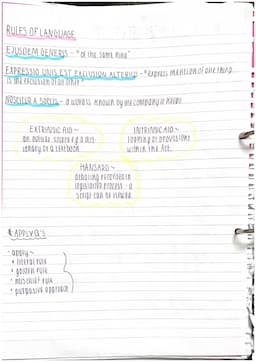 RULES OF LANGUAGE
EJUSDEM GENERIS - "of the same kind"
EXPRESSIO UNIS EST EXCLUSION ALTERIUS - "express mention of one thing
is the exclusion of an other"
NOSCITUR A SOCIIS - a word is known by the company it keeps
EXTRINSIC AID ~
an outside source e.g a dict
ionary or a textbook.
INTRINSIC AID ~
looking at provisions
within the Act.
HANSARD ~
debating recorded in
legislative process - a
script can be viewed
APPLY Q'S
- apply ~
• literal rule
• golden rule
• mischief rule
• purposive approach